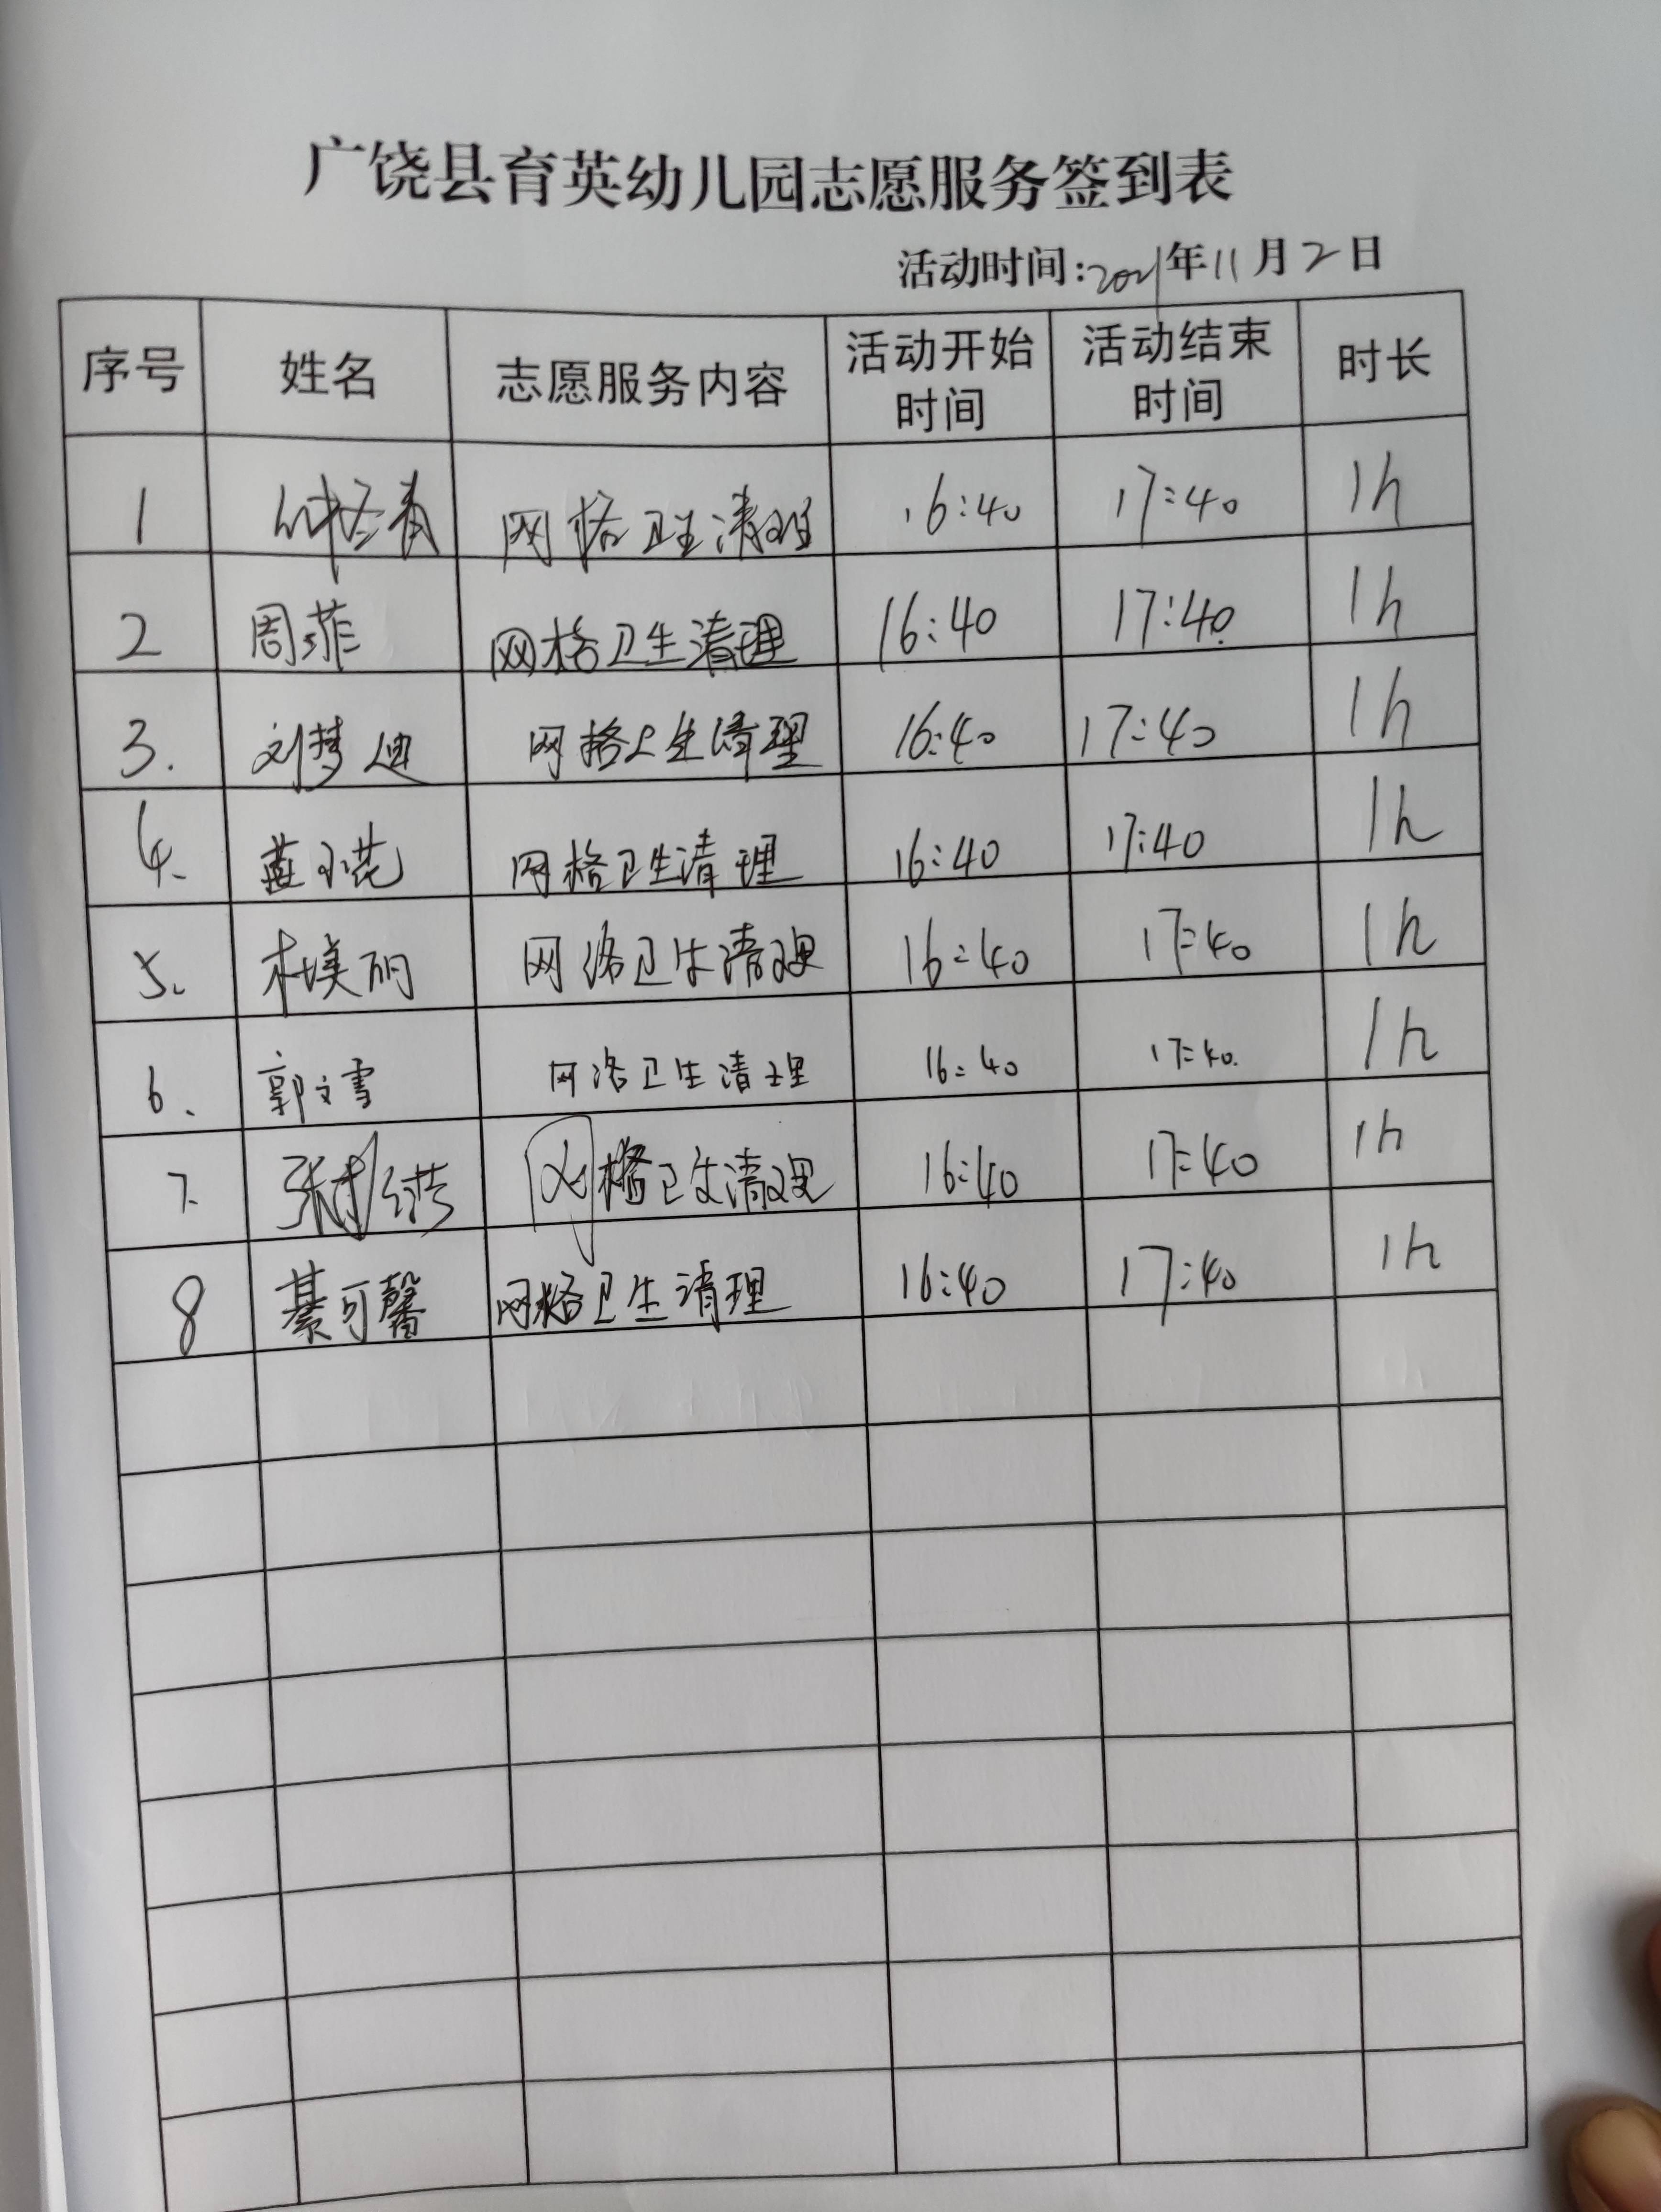 广饶县育英幼儿园志愿服务签到表
活动时间:2021年11月2日
序号 姓名 志愿服务内容 活动开始时间 活动结束时间 时长
1 网格卫生清理 16:40 17:40 1h
2 周菲 网格卫生清理 16:40 17:40 1h
3. 刘梦迪 网格卫生清理 16:40 17:40 1h
4. 蓝小花 网格卫生清理 16:40 17:40 1h
5. 网络卫生清理 16:40 17:40 1h
6. 郭文雪 网洛卫生清理 16:40 17:40. 1h
7. 网格卫生清理 16:40 17:40 1h
8 綦可馨 网格卫生清理 16:40 17:40 1h